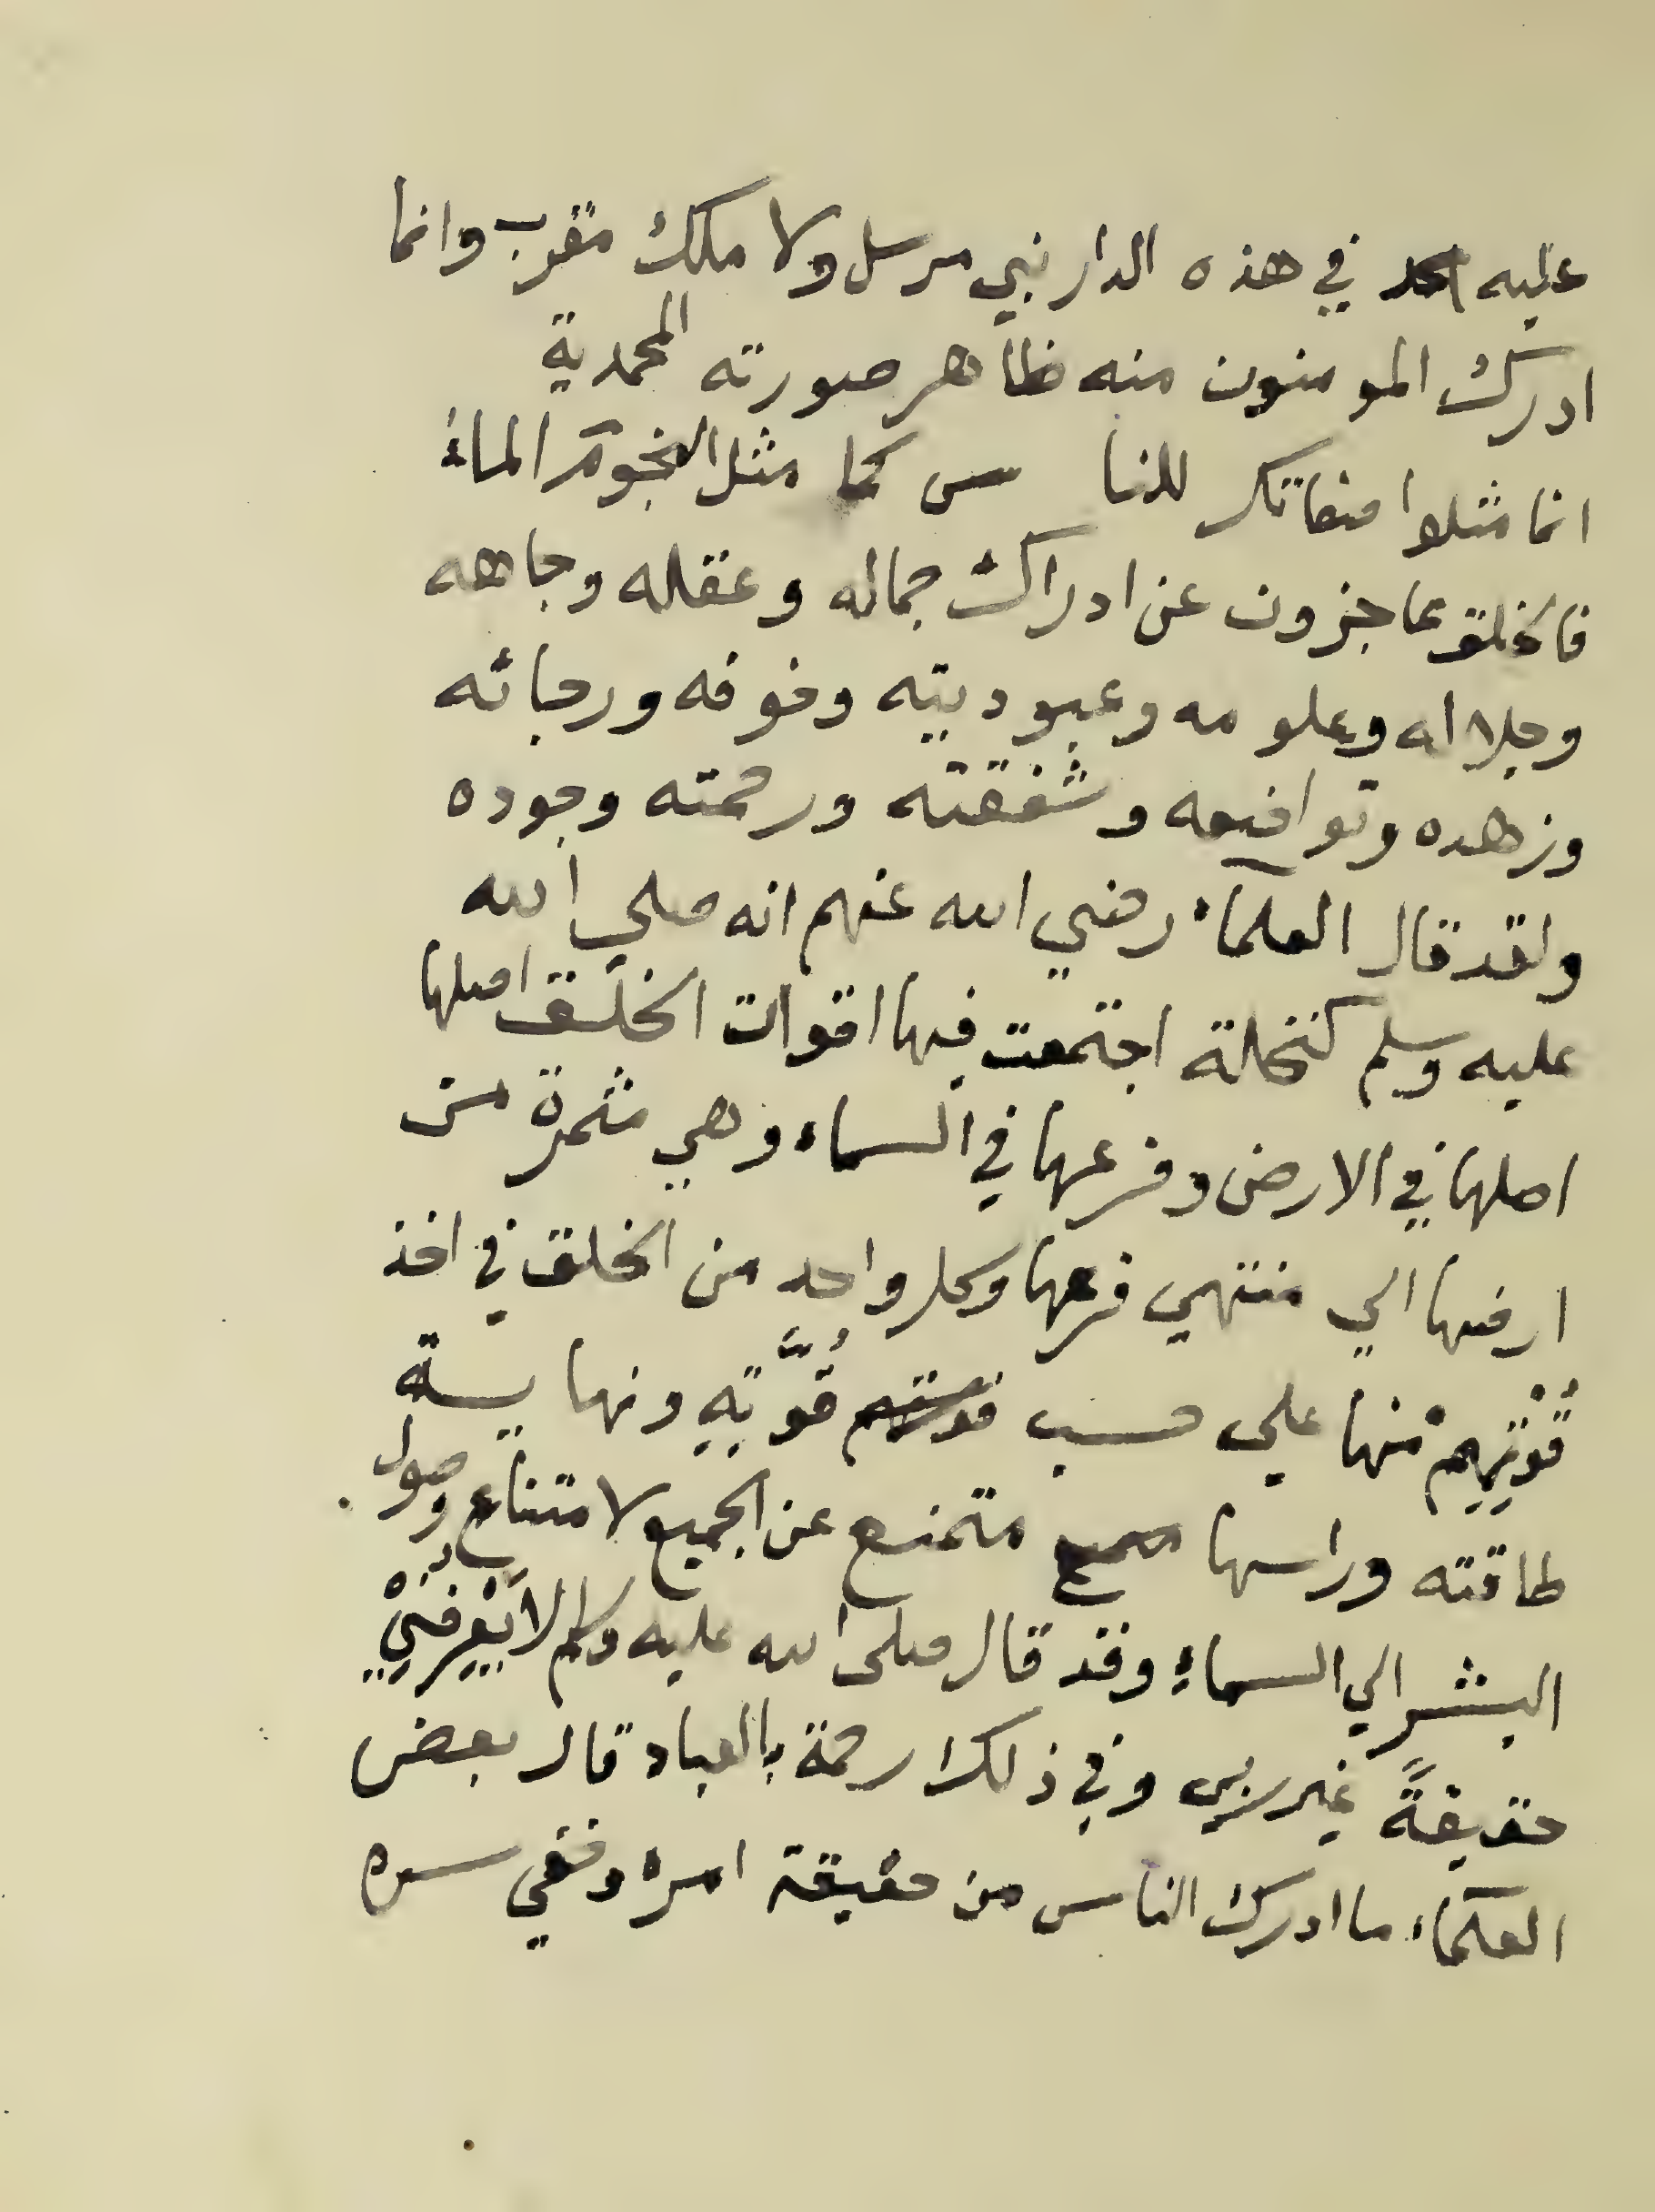 عليه احد في هذه الدار نبي مرسل ولا ملك مقرب وانما
ادرك المومنون منه ظاهر صورته المحمدية
انما مثلوا صفاتك للنا س كما مثل النجوم الماء
فالخلق عاجزون عن ادراك جماله وعقله وجاهه
وجلاله وعلومه وعبوديته وخوفه ورجائه
وزهده وتواضعه وشفقته ورحمته وجوده
ولقد قال العلماء رضي الله عنهم انه صلي الله
عليه وسلم كنخلة اجتمعت فيها اقوات الخلق اصلها
اصلها في الارض وفرعها في السماء وهي مثمرة من
ارضها الي منتهي فرعها وكل واحد من الخلق في اخذ
قُوْتِهِمْ منها علي حسب قُوَّتِهِ ونهاية
طاقته وراسها متمنع عن الجميع لامتناع وصول
البشر الي السماءِ وقد قال صلى الله عليه وسلم لاَيَعْرِفُنِيْ
حقيقةً غير ربي وفي ذلك رحمة بالعباد قال بعض
العلماء ما ادرك الناس من حقيقة امره وخفي سره